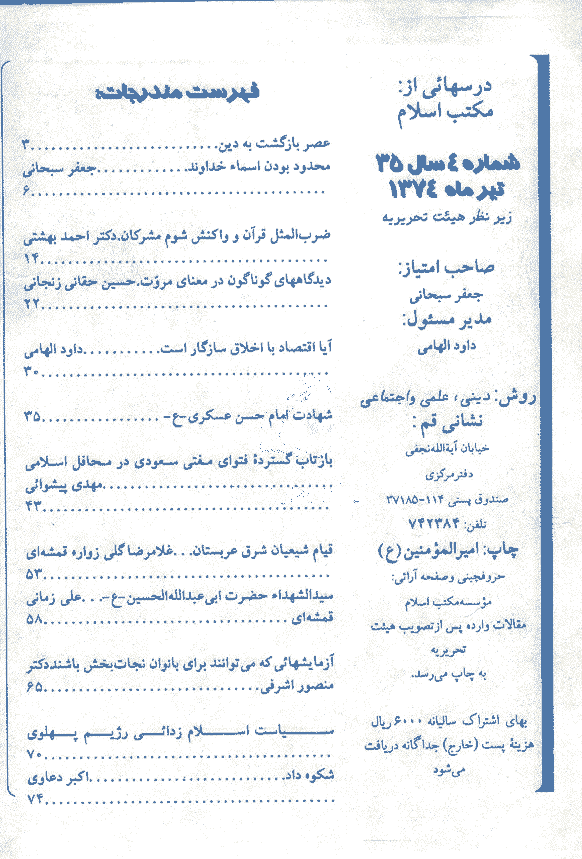 درسهائی از:
مکتب اسلام
شماره ٤ سال ۳۵
تیر ماه ۱۳۷٤
زیر نظر هیئت تحریریه
صاحب امتیاز:
جعفر سبحانی
مدیر مسئول:
داود الهامی
روش: دینی، علمی واجتماعی
نشانی قم:
خیابان آیةالله‌نجفی
دفترمرکزی
صندوق پستی ۱۱۴-۳۷۱۸۵
تلفن: ۷۴۲۳۸۴
چاپ: امیرالمؤمنین (ع)
حروفچینی وصفحه آرائی:
مؤسسه‌مکتب اسلام
مقالات وارده پس ازتصویب هیئت
تحریریه
به چاپ می‌رسد.
بهای اشتراک سالیانه ۶۰۰۰ ریال
هزینهٔ پست (خارج) جداگانه دریافت
می‌شود
فهرست مندرجات:
عصر بازگشت به دین..........................۳
محدود بودن اسماء خداوند............جعفر سبحانی
....................................۶
ضرب‌المثل قرآن و واکنش شوم مشرکان.دکتر احمد بهشتی
....................................۱۴
دیدگاههای گوناگون در معنای مروّت.حسین حقانی زنجانی
....................................۲۲
آیا اقتصاد با اخلاق سازگار است...........داود الهامی
....................................۳۰
شهادت امام حسن عسکری-ع- .................۳۵
بازتاب گستردهٔ فتوای مفتی سعودی در محافل اسلامی
..............................مهدی پیشوائی
....................................۴۳
قیام شیعیان شرق عربستان...غلامرضا گلی زواره قمشه‌ای
....................................۵۳
سیدالشهداء حضرت ابی‌عبدالله‌الحسین-ع-...علی زمانی
قمشه‌ای ..............................۵۸
آزمایشهائی که می‌توانند برای بانوان نجات‌بخش باشند.دکتر
منصور اشرفی..............................۶۵
سیاست اسلام زدائی رژیم پهلوی
....................................۷۰
شکوه داد.........................اکبر دعاوی
....................................۷۴